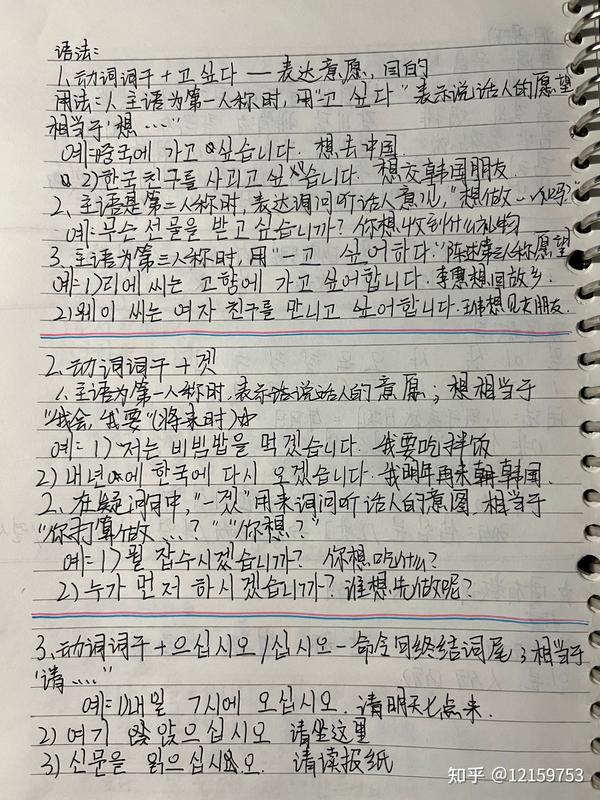 语法:
1. 动词词干 + 고 싶다 — 表达意愿, 目的
用法: 1. 主语为第一人称时, 用"고 싶다" 表示说话人的愿望
相当于"想……"
예: 1) 중국에 가고 싶습니다. 想去中国
2) 한국 친구를 사귀고 싶습니다. 想交韩国朋友.
2. 主语是第二人称时, 表达询问听话人意见, "想做…吗?"
예: 무슨 선물을 받고 싶습니까? 你想收到什么礼物
3. 主语为第三人称时, 用"-고 싶어하다." 陈述第三人称愿望
예: 1) 리에 씨는 고향에 가고 싶어합니다. 李惠想回故乡.
2) 웨이 씨는 여자 친구를 만나고 싶어합니다. 王伟想见女朋友.
2. 动词词干 + 겟
1. 主语为第一人称时, 表示话说话人的意愿; 想相当于
"我会, 我要"(将来时)
예: 1) 저는 비빔밥을 먹겠습니다. 我要吃拌饭
2) 내년에 한국에 다시 오겠습니다. 我明年再来韩国.
2. 在疑问句中, "-겠"用来询问听话人的意图. 相当于
"你打算做…?" "你想?"
예: 1) 뭘 잡수시겠습니까? 你想吃什么?
2) 누가 먼저 하시겠습니까? 谁想先做呢?
3. 动词词干 + 으십시오/십시오 - 命令句终结词尾; 相当于
"请……"
예: 1) 내일 7시에 오십시오. 请明天七点来.
2) 여기 앉으십시오 请坐这里
3) 신문을 읽으십시오. 请读报纸
知乎 @12159753